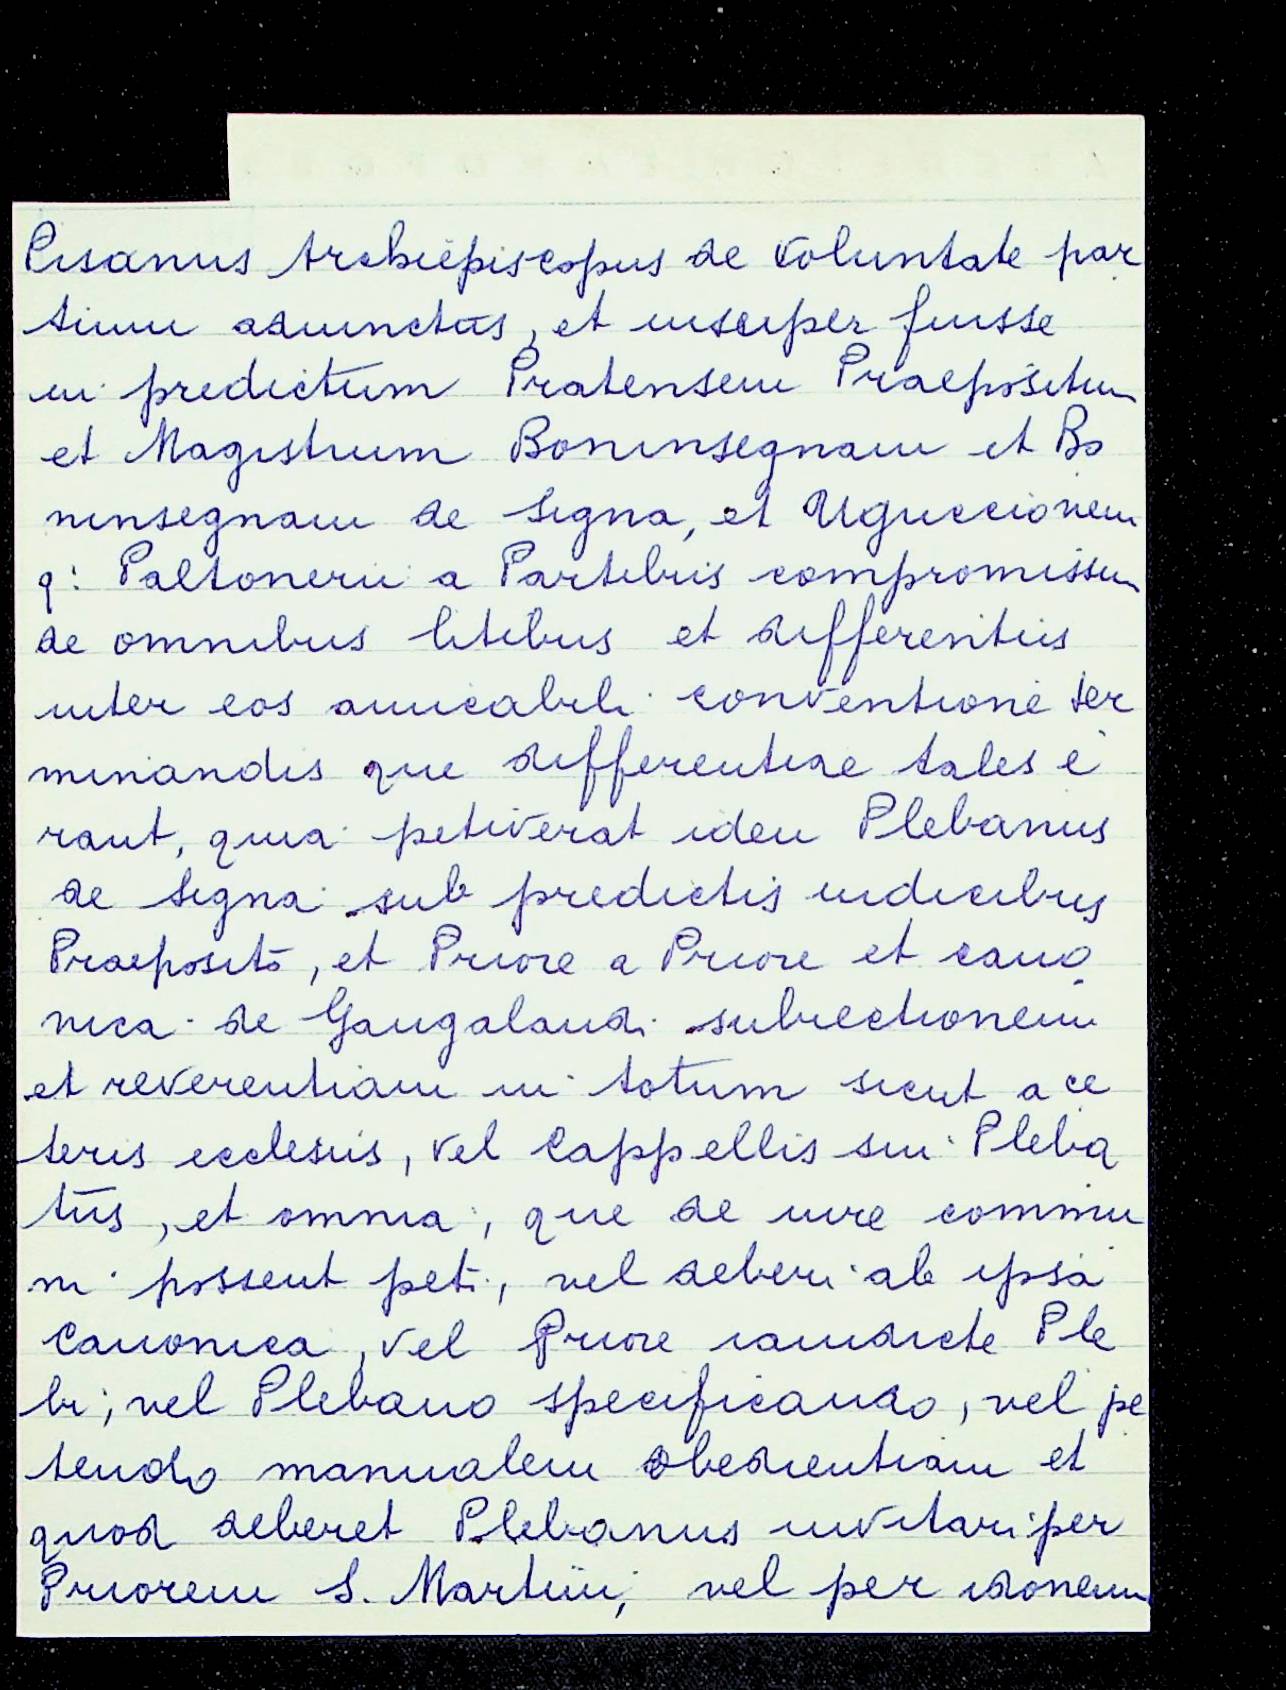 Pisanus Archiepiscopus de voluntate par
tium adiunctus, et insuper fuisse
in predictum Pratensem Praepositum
et Magistrum Boninsegnam et Bo
ninsegnam de Signa, et Uguccionem
q: Paltonerii a Partibus compromissum
de omnibus litibus et differentiis
inter eos amicabili conventione ter
minandis que differentiae tales e
rant, quia petiverat idem Plebanus
de Signa sub predictis iudicibus
Praeposito, et Priore a Priore et cano
nica de Gangalandi subiectionem
et reverentiam in totum sicut a ce
teris ecclesiis, vel Cappellis sui Pleba
tus, et omnia, que de iure commu
ni possent peti, vel deberi ab ipsa
Canonica, vel Priore iamdicte Ple
bi, vel Plebano specificando, vel pe
tendo manualem obedientiam et
quod deberet Plebanus invitari per
Priorem S. Martini, vel per idoneum